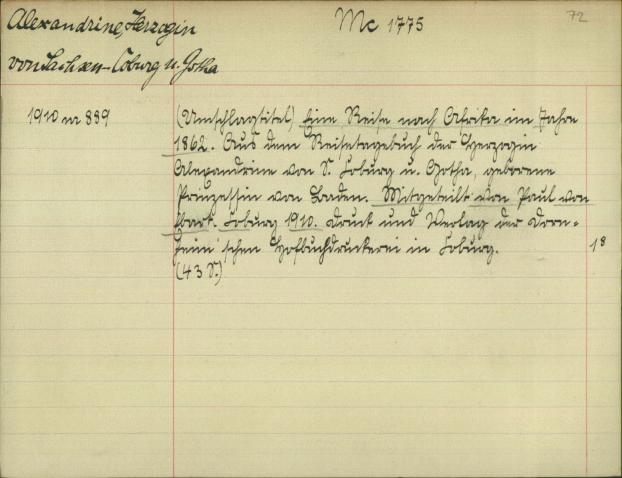 Alexandrine, Herzogin
Mc 1775
72
von Sachsen-Coburg u. Gotha
1910 nr 889
(Umschlagtitel) Eine Reise nach Afrika im Jahre
1862. Aus dem Reisetagebuch der Herzogin
Alexandrine von S. Coburg u. Gotha, geborene
Prinzessin von Baden. Mitgeteilt von Paul von
Ebart. Coburg 1910. Druck und Verlag der Dorn-
heim'schen Hofbuchdruckerei in Coburg.
18
(43 S.)